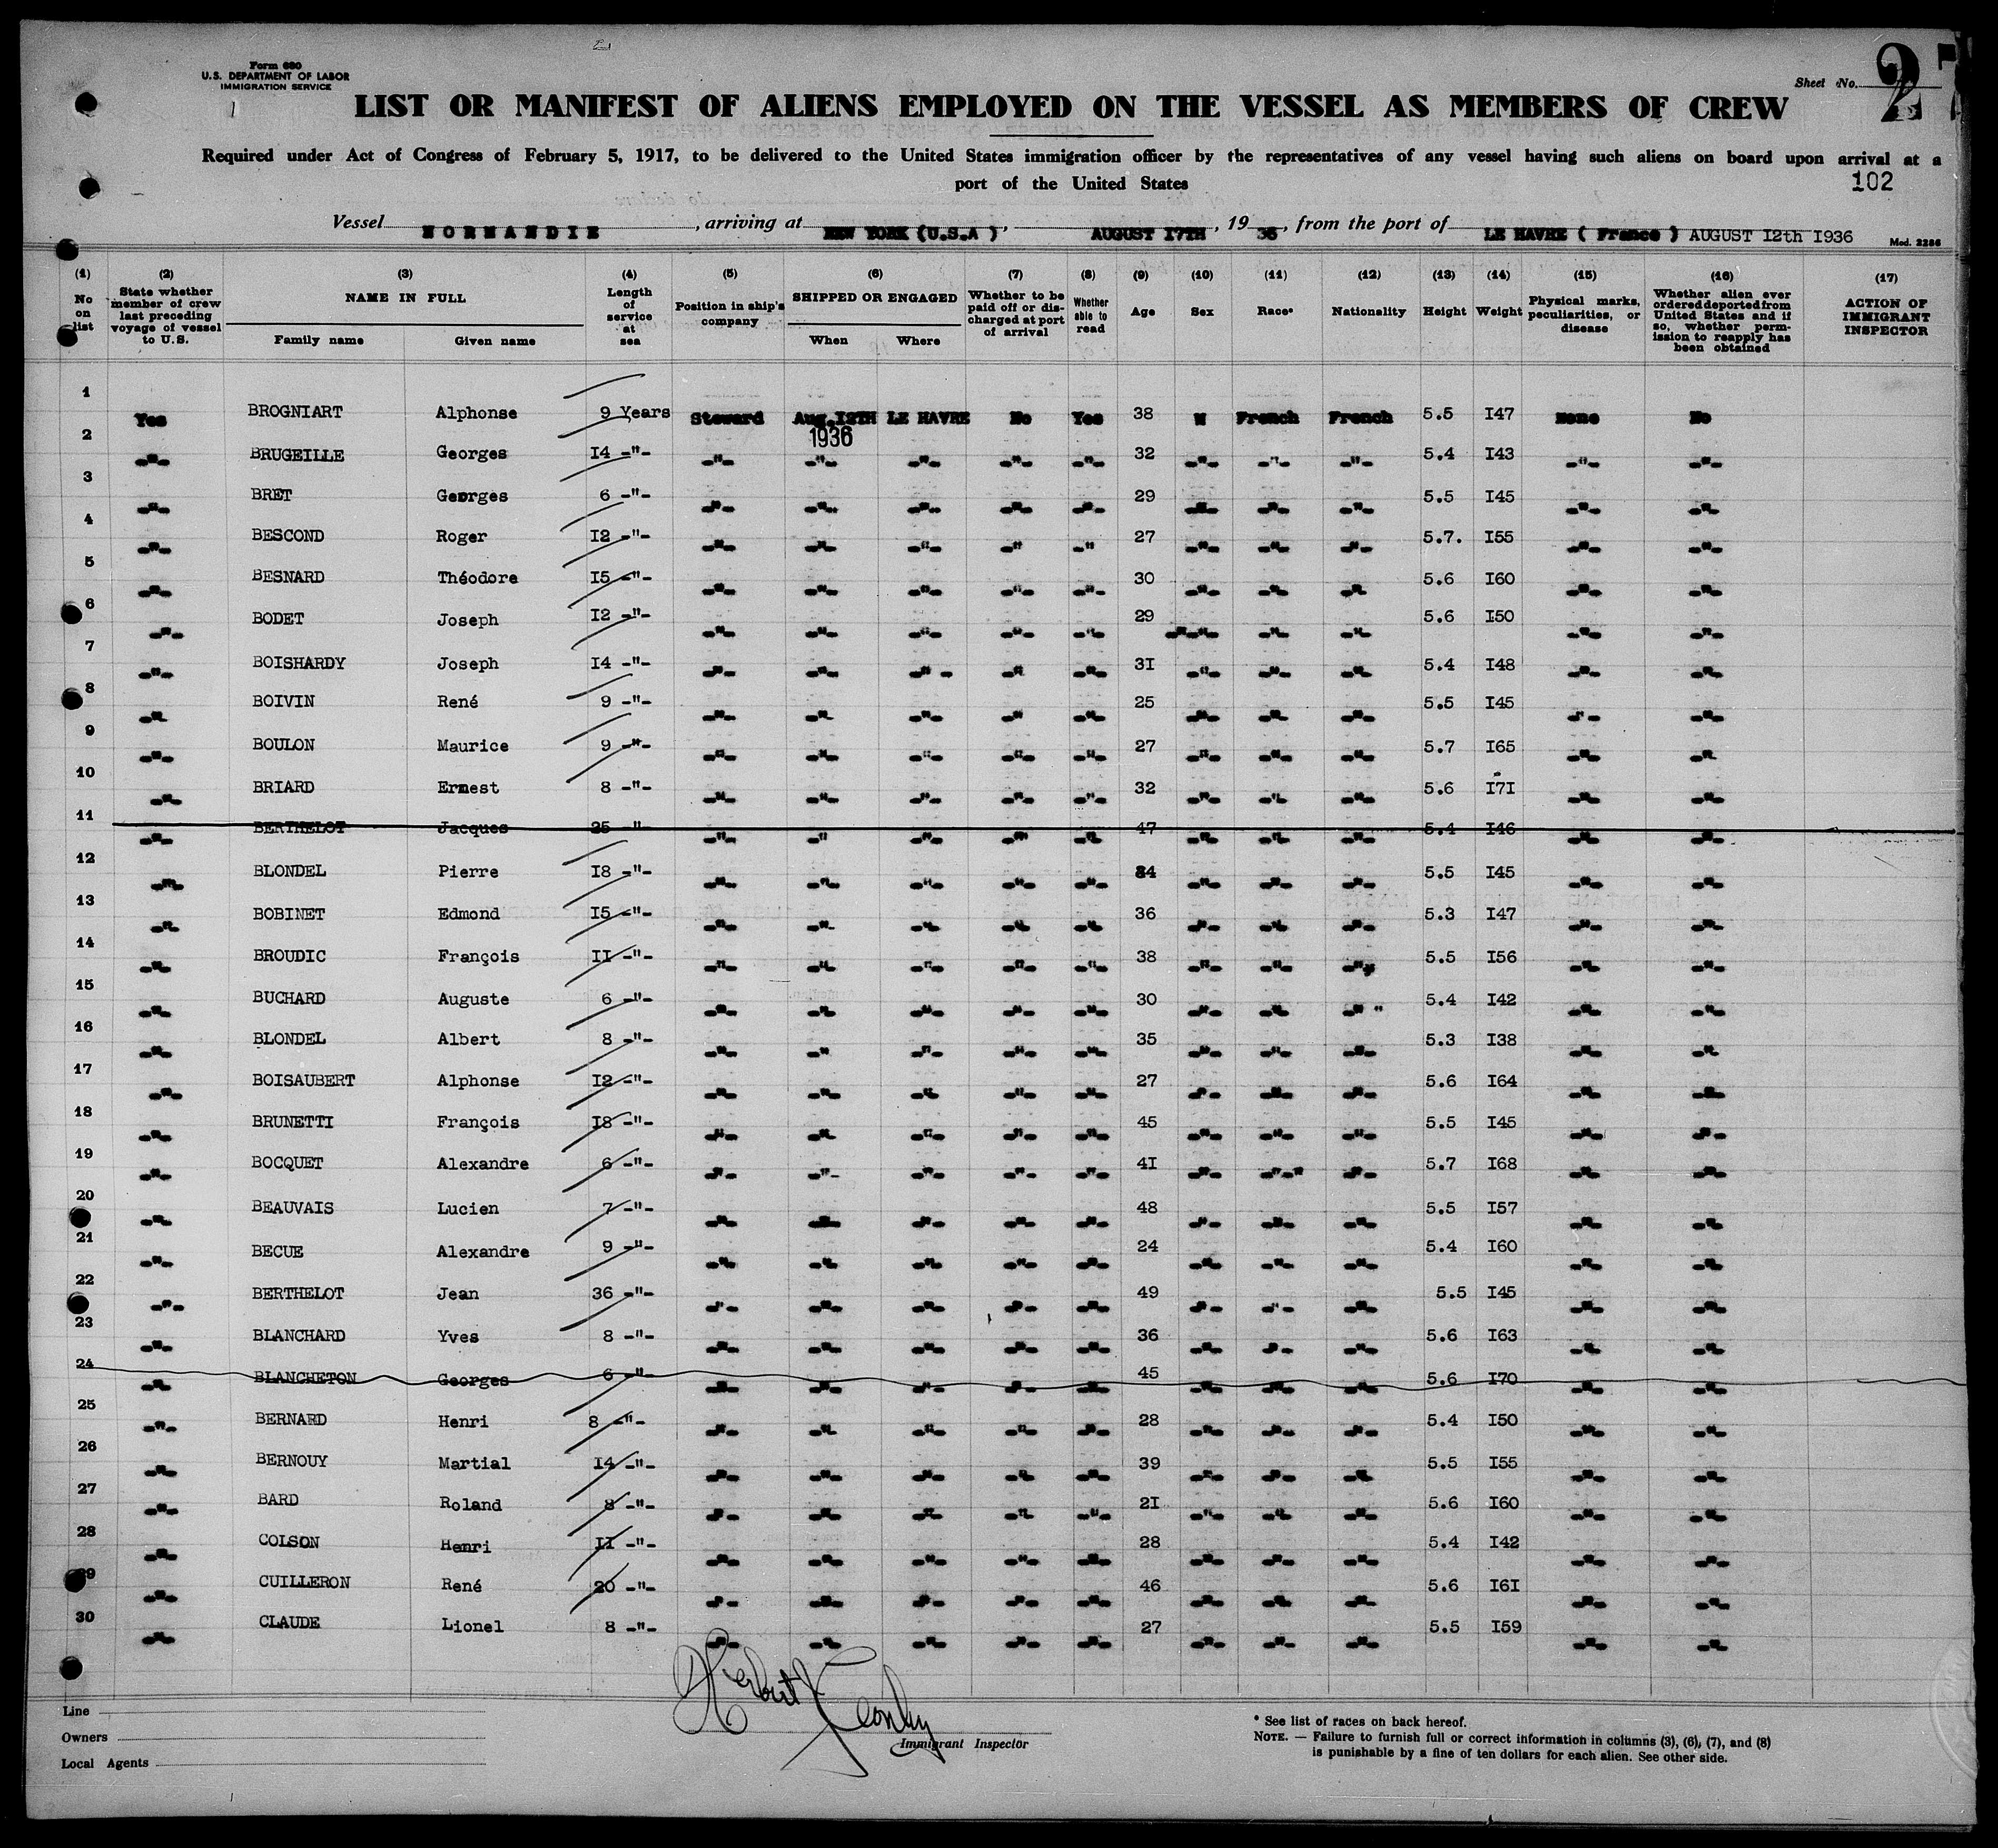 Form 680
U.S. DEPARTMENT OF LABOR
IMMIGRATION SERVICE
Sheet No. 27
LIST OR MANIFEST OF ALIENS EMPLOYED ON THE VESSEL AS MEMBERS OF CREW
Required under Act of Congress of February 5, 1917, to be delivered to the United States immigration officer by the representatives of any vessel having such aliens on board upon arrival at a
port of the United States
102
Vessel NORMANDIE, arriving at NEW YORK (U.S.A ), AUGUST I7TH, 19 36, from the port of LE HAVRE ( France ) AUGUST I2th I936 Mod. 2286
(1) No on list (2) State whether member of crew last preceding voyage of vessel to U.S. (3) NAME IN FULL Family name Given name (4) Length of service at sea (5) Position in ship's company (6) SHIPPED OR ENGAGED When Where (7) Whether to be paid off or discharged at port of arrival (8) Whether able to read (9) Age (10) Sex (11) Race* (12) Nationality (13) Height (14) Weight (15) Physical marks, peculiarities, or disease (16) Whether alien ever ordered deported from United States and if so, whether permission to reapply has been obtained (17) ACTION OF IMMIGRANT INSPECTOR
1 Yes BROGNIART Alphonse 9 Years Steward Aug.I2TH 1936 LE HAVRE No Yes 38 M French French 5.5 I47 None No
2 -"- BRUGEILLE Georges I4 -"- -"- -"- -"- -"- -"- 32 -"- -"- -"- 5.4 I43 -"- -"-
3 -"- BRET Georges 6 -"- -"- -"- -"- -"- -"- 29 -"- -"- -"- 5.5 I45 -"- -"-
4 -"- BESCOND Roger I2 -"- -"- -"- -"- -" -" 27 -"- -"- -"- 5.7. I55 -"- -"-
5 -"- BESNARD Théodore I5 -"- -"- -"- -"- -"- -"- 30 -"- -"- -"- 5.6 I60 -"- -"-
6 -"- BODET Joseph I2 -"- -"- -"- -"- -"- -"- 29 -"- -"- -"- 5.6 I50 -"- -"-
7 -"- BOISHARDY Joseph I4 -"- -"- -"- -"- -"- -"- 3I -"- -"- -"- 5.4 I48 -"- -"-
8 -"- BOIVIN René 9 -"- -"- -"- -"- -" -"- 25 -"- -"- -"- 5.5 I45 -"- -"-
9 -"- BOULON Maurice 9 -"- -"- -"- -"- -"- -"- 27 -"- -"- -"- 5.7 I65 -"- -"-
10 -"- BRIARD Ernest 8 -"- -"- -"- -"- -"- -"- 32 -"- -"- -"- 5.6 I7I -"- -"-
11 -"- BERTHELOT Jacques 25 -"- -"- -" -"- -"- -"- 47 -"- -"- -"- 5.4 I46 -"- -"-
12 -"- BLONDEL Pierre I8 -"- -"- -"- -"- -"- -"- 34 -"- -"- -"- 5.5 I45 -"- -"-
13 -"- BOBINET Edmond I5 -"- -"- -"- -"- -"- -"- 36 -"- -"- -"- 5.3 I47 -"- -"-
14 -"- BROUDIC François II -"- -"- -"- -"- -"- -"- 38 -"- -"- -"- 5.5 I56 -"- -"-
15 -"- BUCHARD Auguste 6 -"- -"- -"- -"- -"- -"- 30 -"- -"- -"- 5.4 I42 -"- -"-
16 -"- BLONDEL Albert 8 -"- -"- -" -"- -"- -"- 35 -"- -"- -"- 5.3 I38 -"- -"-
17 -"- BOISAUBERT Alphonse I2 -"- -"- -"- -"- -"- -"- 27 -"- -"- -"- 5.6 I64 -"- -"-
18 -"- BRUNETTI François I8 -"- -"- -"- -"- -"- -"- 45 -"- -"- -"- 5.5 I45 -"- -"-
19 -"- BOCQUET Alexandre 6 -"- -"- -"- -"- -"- -"- 4I -"- -"- -"- 5.7 I68 -"- -"-
20 -"- BEAUVAIS Lucien 7 -"- -"- -"- -"- -"- -"- 48 -"- -"- -"- 5.5 I57 -"- -"-
21 -"- BECUE Alexandre 9 -"- -"- -"- -"- -"- -"- 24 -"- -"- -"- 5.4 I60 -"- -"-
22 -"- BERTHELOT Jean 36 -"- -"- -"- -"- -"- -"- 49 -"- -"- -"- 5.5 I45 -"- -"-
23 -"- BLANCHARD Yves 8 -"- -"- -"- -"- -"- -"- 36 -"- -"- -"- 5.6 I63 -"- -"-
24 -"- BLANCHETON Georges 6 -"- -"- -"- -"- -"- -"- 45 -"- -"- -"- 5.6 I70 -"- -"-
25 -"- BERNARD Henri 8 -"- -"- -"- -"- -"- -"- 28 -"- -"- -"- 5.4 I50 -"- -"-
26 -"- BERNOUY Martial I4 -"- -"- -"- -"- -"- -"- 39 -"- -"- -"- 5.5 I55 -"- -"-
27 -"- BARD Roland 8 -"- -"- -"- -"- -"- -"- 2I -"- -"- -"- 5.6 I60 -"- -"-
28 -"- COLSON Henri II -"- -"- -"- -"- -"- -"- 28 -"- -"- -"- 5.4 I42 -"- -"-
29 -"- CUILLERON René 20 -"- -"- -"- -"- -"- -"- 46 -"- -"- -"- 5.6 I6I -"- -"-
30 -"- CLAUDE Lionel 8 -"- -"- -"- -"- -"- -"- 27 -"- -"- -"- 5.5 I59 -"- -"-
Line
Owners
Local Agents
Herbert
Immigrant Inspector
* See list of races on back hereof.
NOTE. — Failure to furnish full or correct information in columns (3), (6), (7), and (8)
is punishable by a fine of ten dollars for each alien. See other side.